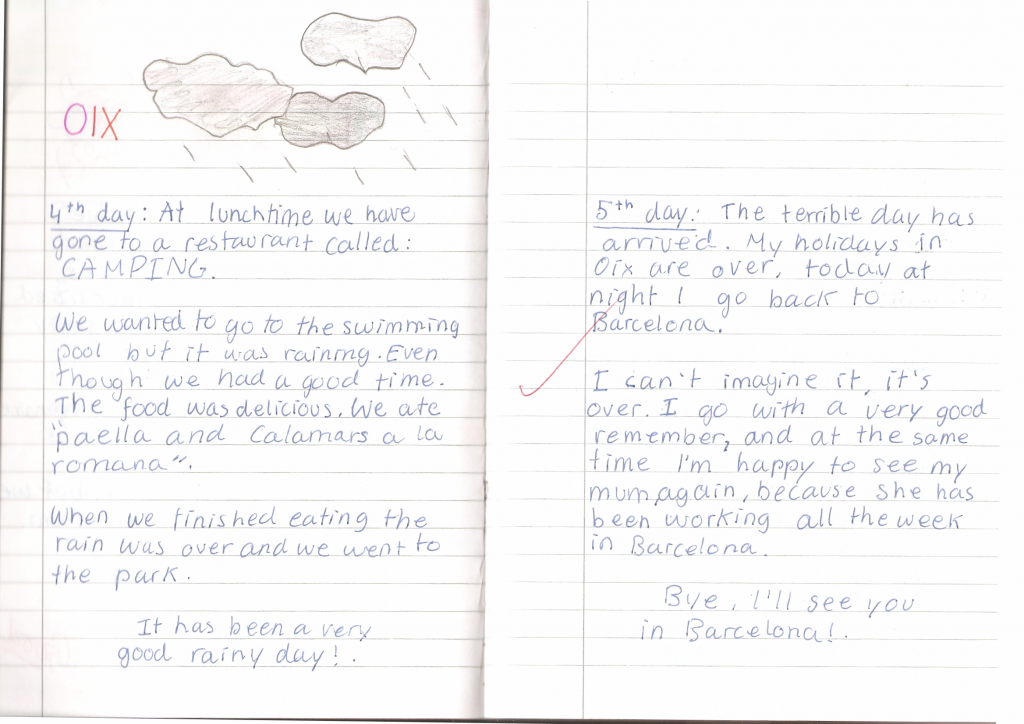 OIX
4th day: At lunchtime we have
gone to a restaurant called:
CAMPING.
We wanted to go to the swimming
pool but it was raining. Even
though we had a good time.
The food was delicious. We ate
"paella and Calamars a la
romana".
When we finished eating the
rain was over and we went to
the park.
It has been a very
good rainy day!.
5th day: The terrible day has
arrived. My holidays in
Oix are over, today at
night I go back to
Barcelona.
I can't imagine it, it's
over. I go with a very good
remember, and at the same
time I'm happy to see my
mum, again, because she has
been working all the week
in Barcelona.
Bye, I'll see you
in Barcelona!.